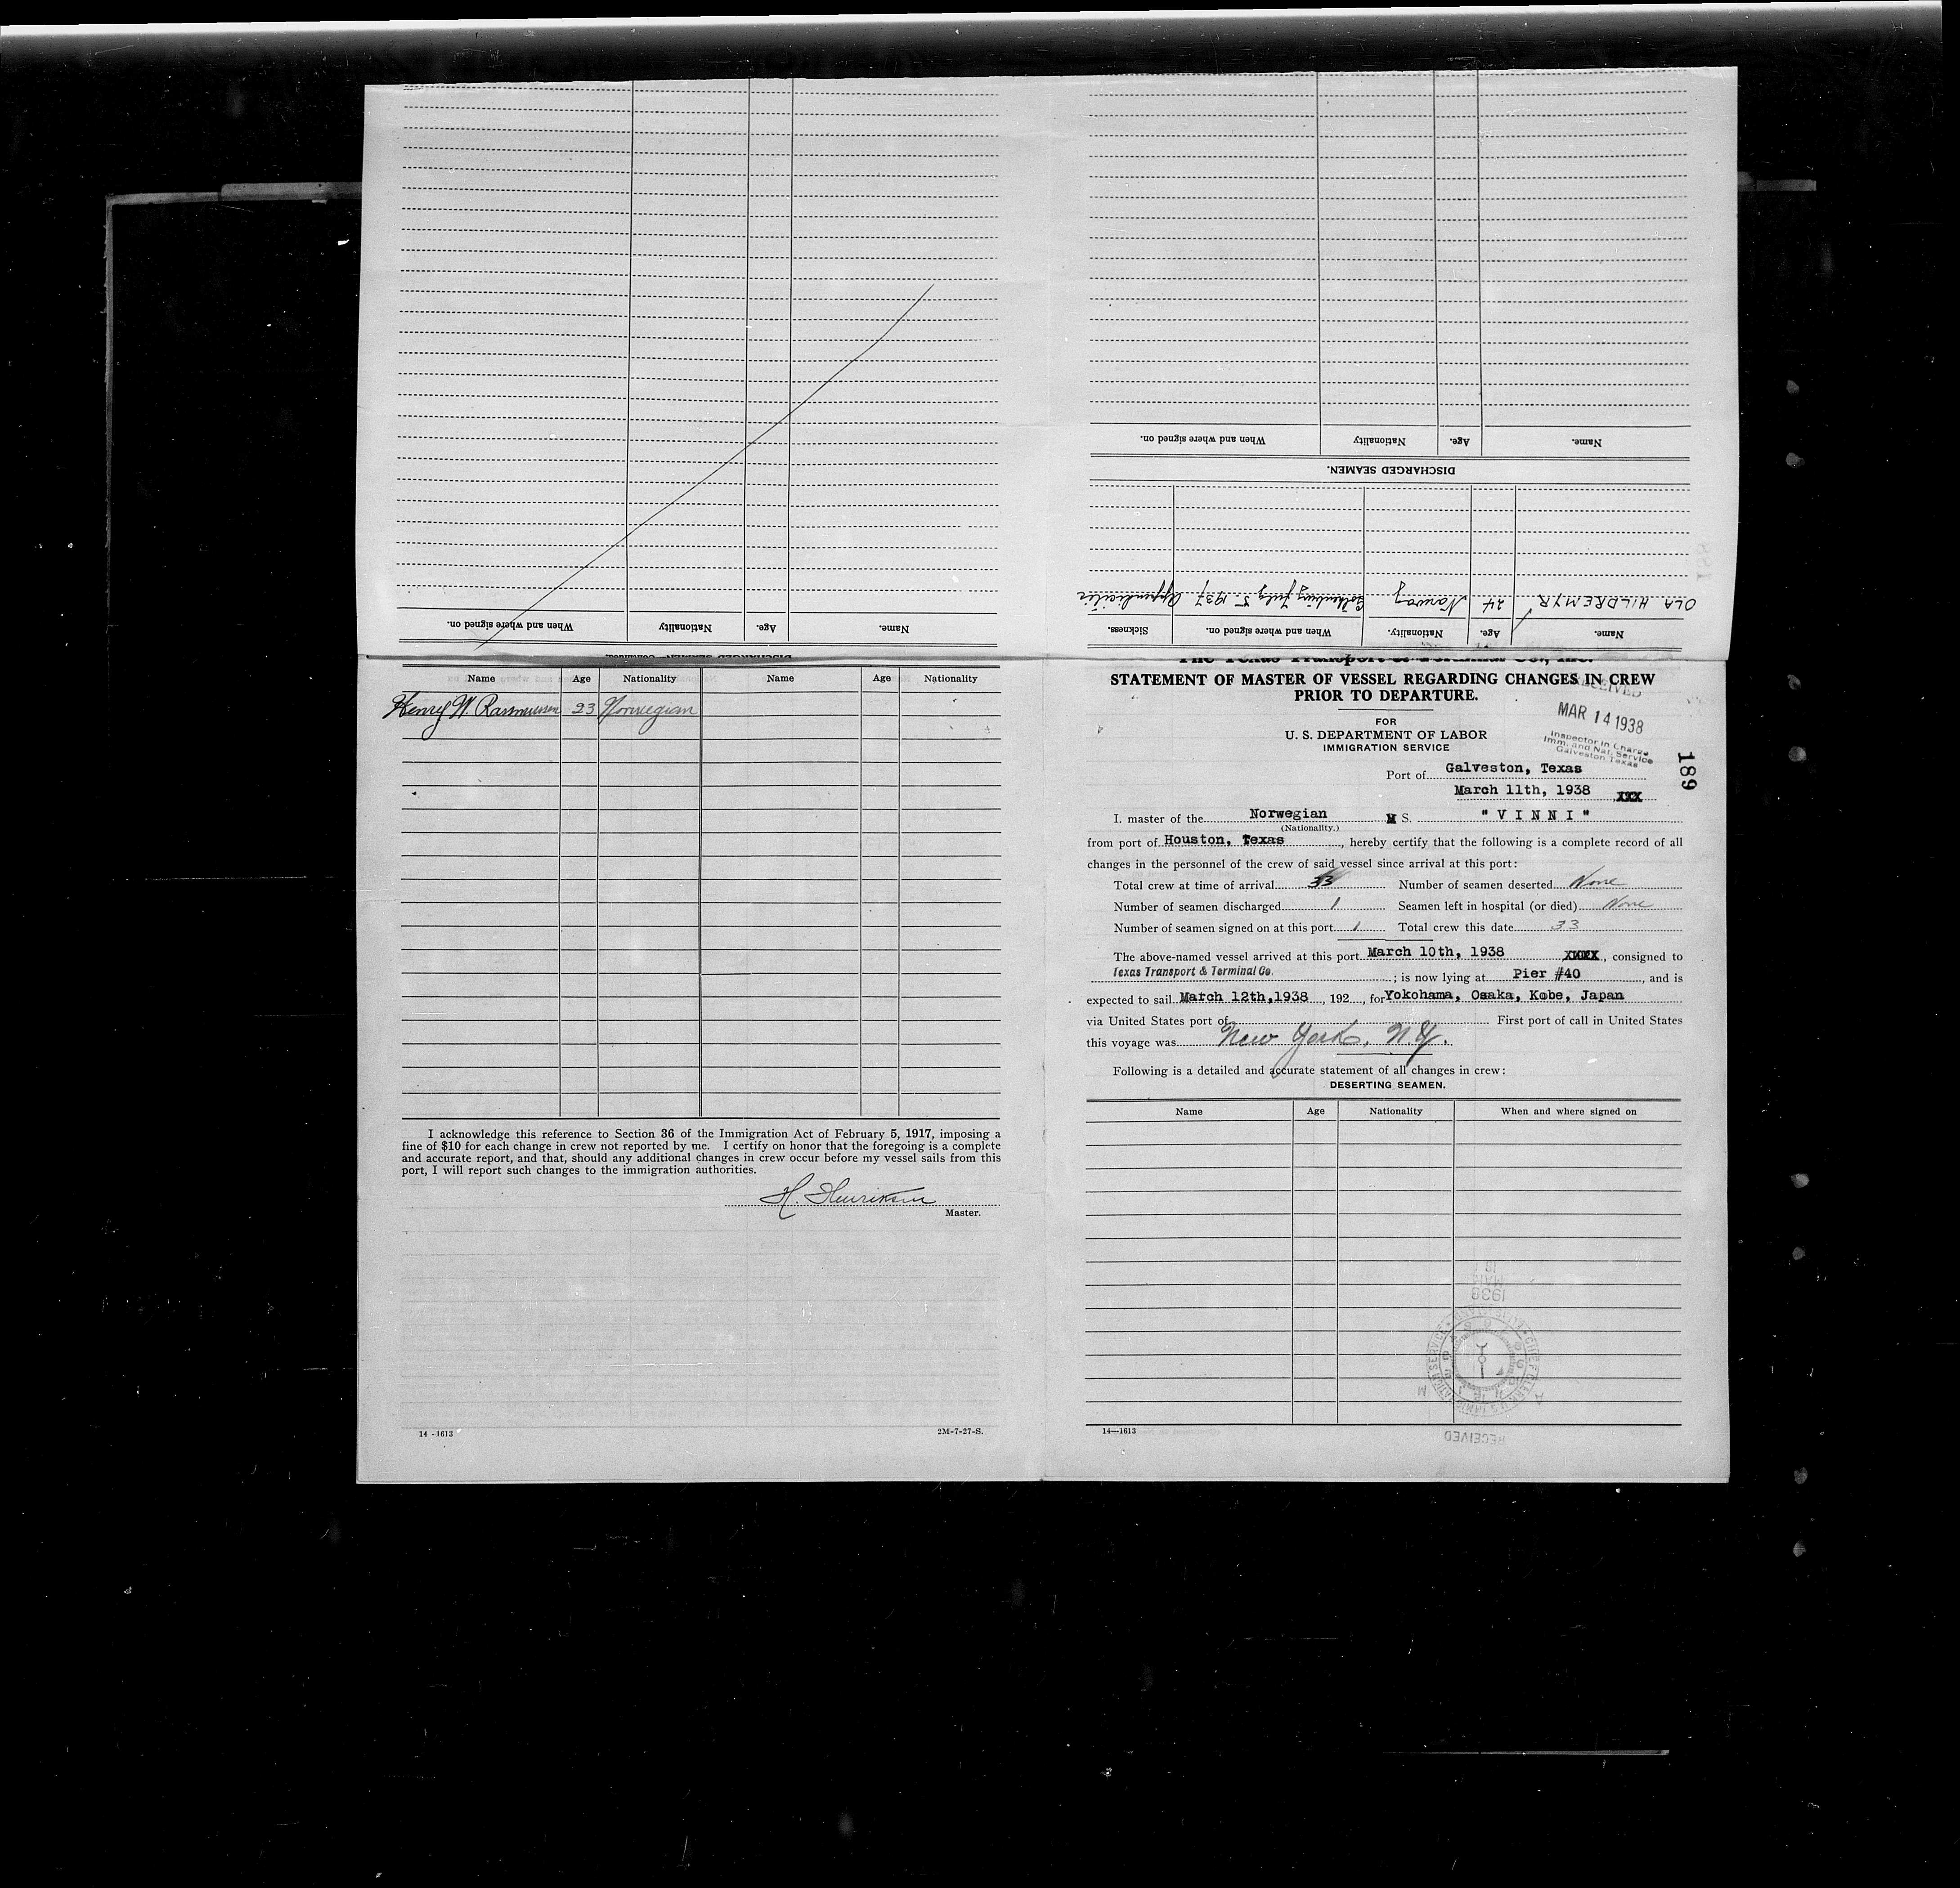 When and where signed on.
Nationality
Age.
Name.
DISCHARGED SEAMEN—Continued.
When and where signed on.
Nationality
Age.
Name.
DISCHARGED SEAMEN.
OLA HILDREMYR 24 Norway Gothenburg July 5. 1937 Appendicitis
Sickness.
When and where signed on.
Nationality.
Age.
Name.
Name Age Nationality Name Age Nationality
Henry W. Rasmussen 23 Norwegian
I acknowledge this reference to Section 36 of the Immigration Act of February 5, 1917, imposing a
fine of $10 for each change in crew not reported by me. I certify on honor that the foregoing is a complete
and accurate report, and that, should any additional changes in crew occur before my vessel sails from this
port, I will report such changes to the immigration authorities.
H. Henriksen
Master.
14 - 1613 2M-7-27-S.
The Texas Transport & Terminal Co., Inc.
STATEMENT OF MASTER OF VESSEL REGARDING CHANGES IN CREW
PRIOR TO DEPARTURE.
RECEIVED
MAR 14 1938
Inspector in Charge
Imm. and Nat. Service
Galveston Texas
189
FOR
U. S. DEPARTMENT OF LABOR
IMMIGRATION SERVICE
Port of Galveston, Texas
March 11th, 1938 XXX
I. master of the Norwegian M S. "VINNI"
(Nationality.)
from port of Houston, Texas, hereby certify that the following is a complete record of all
changes in the personnel of the crew of said vessel since arrival at this port:
Total crew at time of arrival 33 Number of seamen deserted None
Number of seamen discharged 1 Seamen left in hospital (or died) None
Number of seamen signed on at this port 1 Total crew this date 33
The above-named vessel arrived at this port March 10th, 1938 XXXX, consigned to
Texas Transport & Terminal Co. ; is now lying at Pier #40, and is
expected to sail March 12th, 1938, 192, for Yokohama, Osaka, Kobe, Japan
via United States port of First port of call in United States
this voyage was New York, N.Y.
Following is a detailed and accurate statement of all changes in crew:
DESERTING SEAMEN.
Name Age Nationality When and where signed on
1938
RECEIVED
14—1613